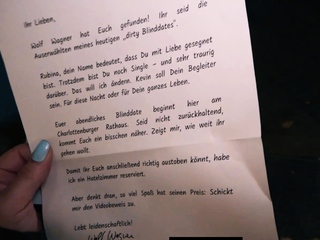 Ihr Lieben,
Wolf Wagner hat Euch gefunden! Ihr seid die
Auserwählten meines heutigen „dirty Blinddates".
Rubina, dein Name bedeutet, dass Du mit Liebe gesegnet
bist. Trotzdem bist Du noch Single - und sehr traurig
darüber. Das will ich ändern. Kevin soll Dein Begleiter
sein. Für diese Nacht oder für Dein ganzes Leben.
Euer abendliches Blinddate beginnt hier am
Charlottenburger Rathaus. Seid nicht zurückhaltend,
kommt Euch ein bisschen näher. Zeigt mir, wie weit ihr
gehen wollt.
Damit Ihr Euch anschließend richtig austoben könnt, habe
ich ein Hotelzimmer reserviert.
Aber denkt dran, so viel Spaß hat seinen Preis: Schickt
mir den Videobeweis zu.
Lebt leidenschaftlich!
Wolf Wagner